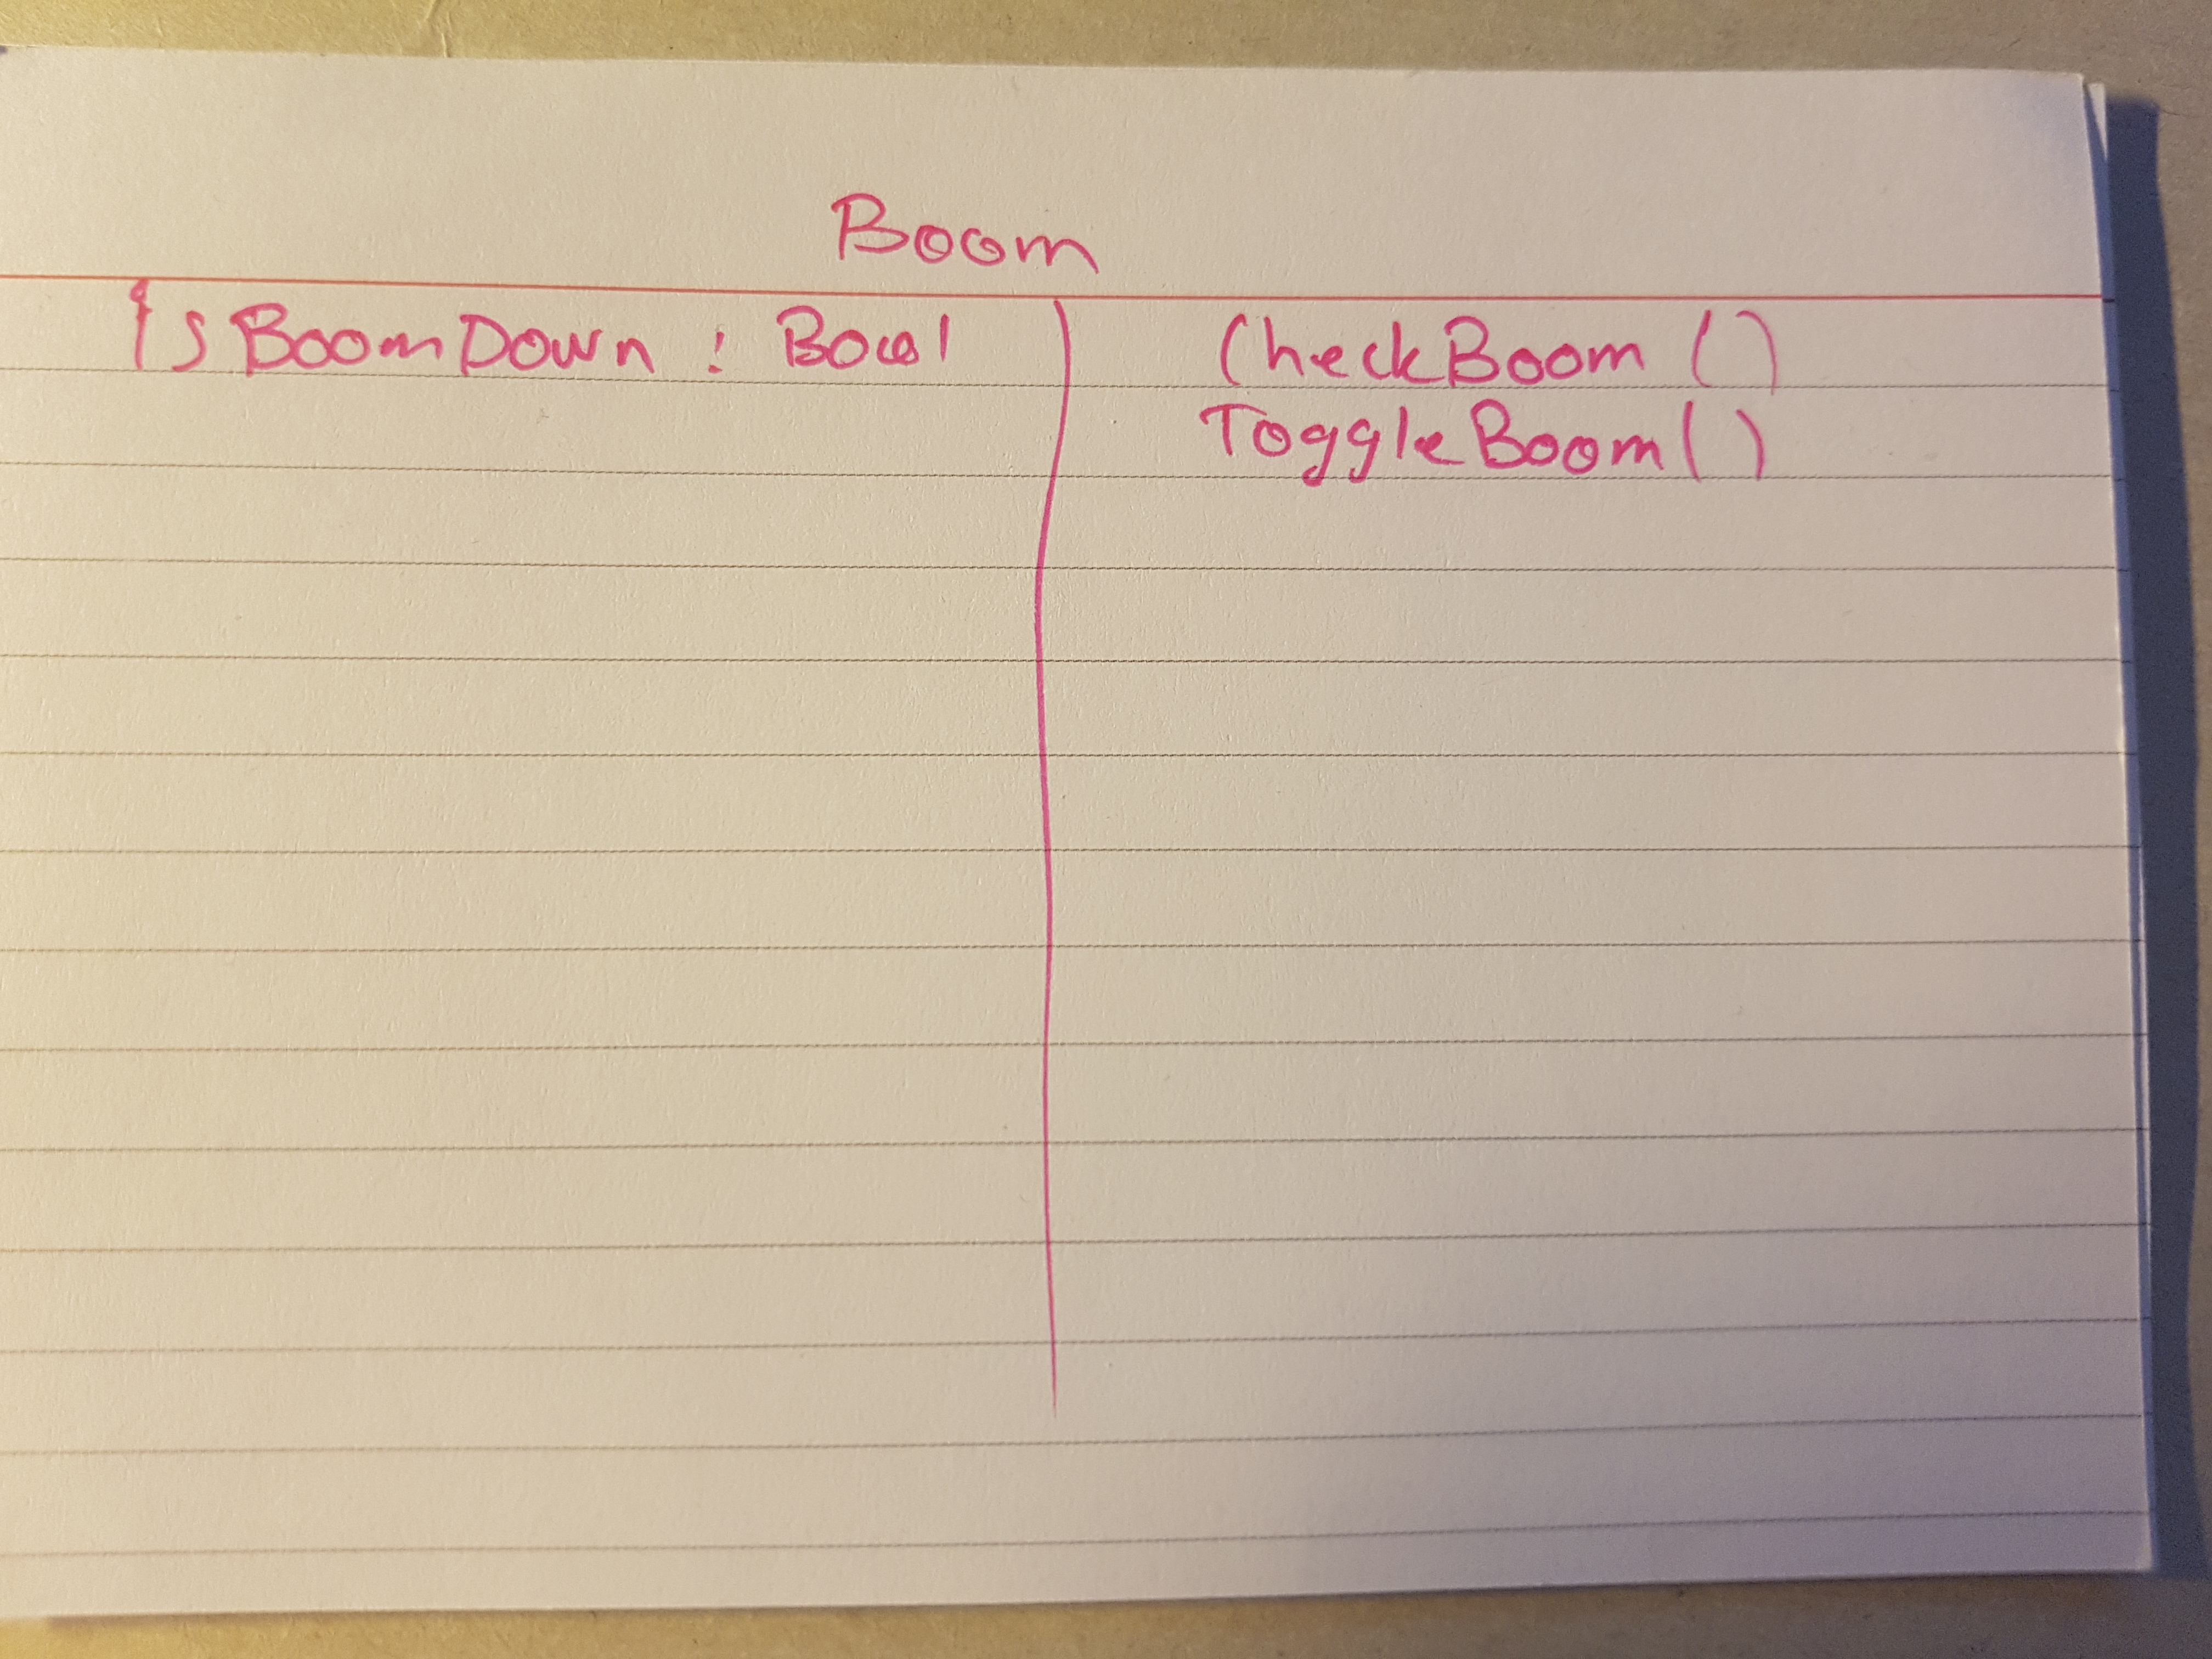 Boom
isBoomDown : Bool
CheckBoom ()
ToggleBoom()